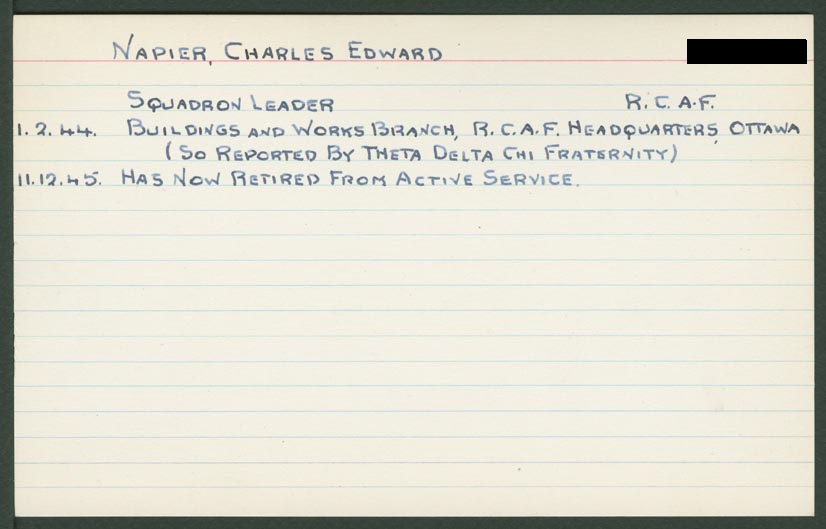 NAPIER, CHARLES EDWARD
SQUADRON LEADER R.C.A.F.
1.2.44. BUILDINGS AND WORKS BRANCH, R.C.A.F. HEADQUARTERS, OTTAWA
(SO REPORTED BY THETA DELTA CHI FRATERNITY)
11.12.45. HAS NOW RETIRED FROM ACTIVE SERVICE.